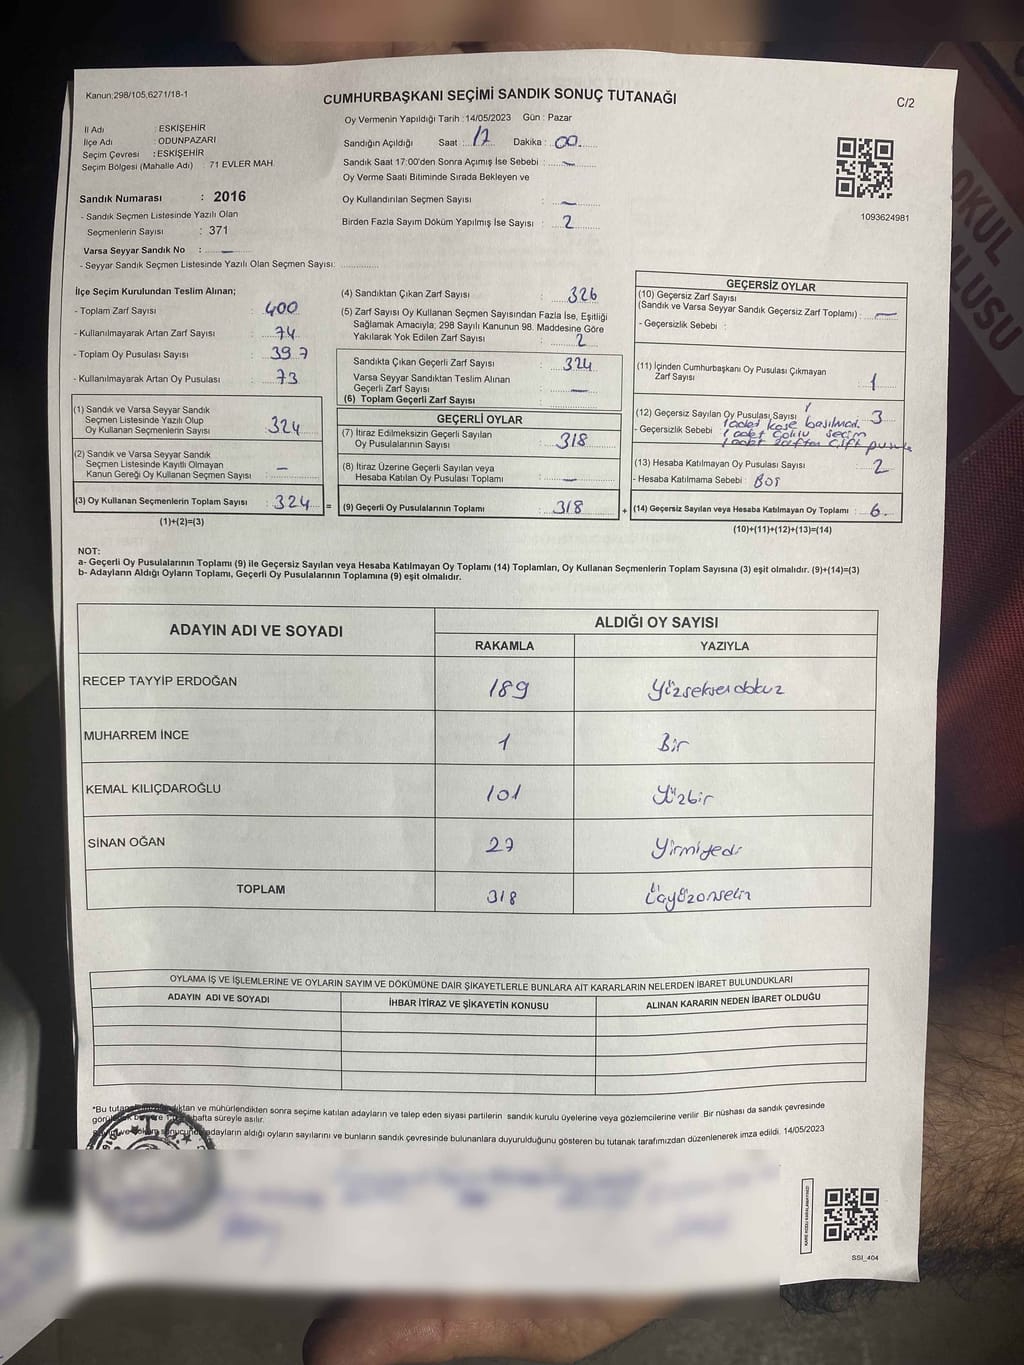 Kanun:298/105,6271/18-1
CUMHURBAŞKANI SEÇİMİ SANDIK SONUÇ TUTANAĞI
C/2
İl Adı : ESKİŞEHİR
İlçe Adı : ODUNPAZARI
Seçim Çevresi : ESKİŞEHİR
Seçim Bölgesi (Mahalle Adı) : 71 EVLER MAH.
Sandık Numarası : 2016
- Sandık Seçmen Listesinde Yazılı Olan
Seçmenlerin Sayısı : 371
Varsa Seyyar Sandık No : —
- Seyyar Sandık Seçmen Listesinde Yazılı Olan Seçmen Sayısı:
Oy Vermenin Yapıldığı Tarih : 14/05/2023 Gün : Pazar
Sandığın Açıldığı Saat : 17 Dakika : 00
Sandık Saat 17:00'den Sonra Açımış İse Sebebi : —
Oy Verme Saati Bitiminde Sırada Bekleyen ve
Oy Kullandırılan Seçmen Sayısı : —
Birden Fazla Sayım Döküm Yapılmış İse Sayısı : 2
1093624981
OKUL
İlçe Seçim Kurulundan Teslim Alınan;
- Toplam Zarf Sayısı : 400
- Kullanılmayarak Artan Zarf Sayısı : 74
- Toplam Oy Pusulası Sayısı : 397
- Kullanılmayarak Artan Oy Pusulası : 73
(1) Sandık ve Varsa Seyyar Sandık
Seçmen Listesinde Yazılı Olup
Oy Kullanan Seçmenlerin Sayısı : 324
(2) Sandık ve Varsa Seyyar Sandık
Seçmen Listesinde Kayıtlı Olmayan
Kanun Gereği Oy Kullanan Seçmen Sayısı : —
(3) Oy Kullanan Seçmenlerin Toplam Sayısı : 324 =
(1)+(2)=(3)
(4) Sandıktan Çıkan Zarf Sayısı : 326
(5) Zarf Sayısı Oy Kullanan Seçmen Sayısından Fazla İse, Eşitliği
Sağlamak Amacıyla; 298 Sayılı Kanunun 98. Maddesine Göre
Yakılarak Yok Edilen Zarf Sayısı : 2
Sandıkta Çıkan Geçerli Zarf Sayısı : 324
Varsa Seyyar Sandıktan Teslim Alınan
Geçerli Zarf Sayısı : —
(6) Toplam Geçerli Zarf Sayısı :
GEÇERLİ OYLAR
(7) İtiraz Edilmeksizin Geçerli Sayılan
Oy Pusulalarının Sayısı : 318
(8) İtiraz Üzerine Geçerli Sayılan veya
Hesaba Katılan Oy Pusulası Toplamı : —
(9) Geçerli Oy Pusulalarının Toplamı : 318 +
GEÇERSİZ OYLAR
(10) Geçersiz Zarf Sayısı
(Sandık ve Varsa Seyyar Sandık Geçersiz Zarf Toplamı) : —
- Geçersizlik Sebebi :
(11) İçinden Cumhurbaşkanı Oy Pusulası Çıkmayan
Zarf Sayısı 1
(12) Geçersiz Sayılan Oy Pusulası Sayısı 3
- Geçersizlik Sebebi 1 adet kaşe basılmadı.
1 adet seçim
1 adet zarftan çift pusula
(13) Hesaba Katılmayan Oy Pusulası Sayısı 2
- Hesaba Katılmama Sebebi : Boş
(14) Geçersiz Sayılan veya Hesaba Katılmayan Oy Toplamı : 6
(10)+(11)+(12)+(13)=(14)
NOT:
a- Geçerli Oy Pusulalarının Toplamı (9) ile Geçersiz Sayılan veya Hesaba Katılmayan Oy Toplamı (14) Toplamları, Oy Kullanan Seçmenlerin Toplam Sayısına (3) eşit olmalıdır. (9)+(14)=(3)
b- Adayların Aldığı Oyların Toplamı, Geçerli Oy Pusulalarının Toplamına (9) eşit olmalıdır.
ADAYIN ADI VE SOYADI ALDIĞI OY SAYISI
RAKAMLA YAZIYLA
RECEP TAYYİP ERDOĞAN 189 Yüzseksendokuz
MUHARREM İNCE 1 Bir
KEMAL KILIÇDAROĞLU 101 Yüzbir
SİNAN OĞAN 27 Yirmiyedi
TOPLAM 318 Üçyüzonsekiz
OYLAMA İŞ VE İŞLEMLERİNE VE OYLARIN SAYIM VE DÖKÜMÜNE DAİR ŞİKAYETLERLE BUNLARA AİT KARARLARIN NELERDEN İBARET BULUNDUKLARI
ADAYIN ADI VE SOYADI İHBAR İTİRAZ VE ŞİKAYETİN KONUSU ALINAN KARARIN NEDEN İBARET OLDUĞU
*Bu ve mühürlendikten sonra seçime katılan adayların ve talep eden siyasi partilerin sandık kurulu üyelerine veya gözlemcilerine verilir. Bir nüshası da sandık çevresinde
hafta süreyle asılır.
adayların aldığı oyların sayılarını ve bunların sandık çevresinde bulunanlara duyurulduğunu gösteren bu tutanak tarafımızdan düzenlenerek imza edildi. 14/05/2023
T.C.
SSI_404